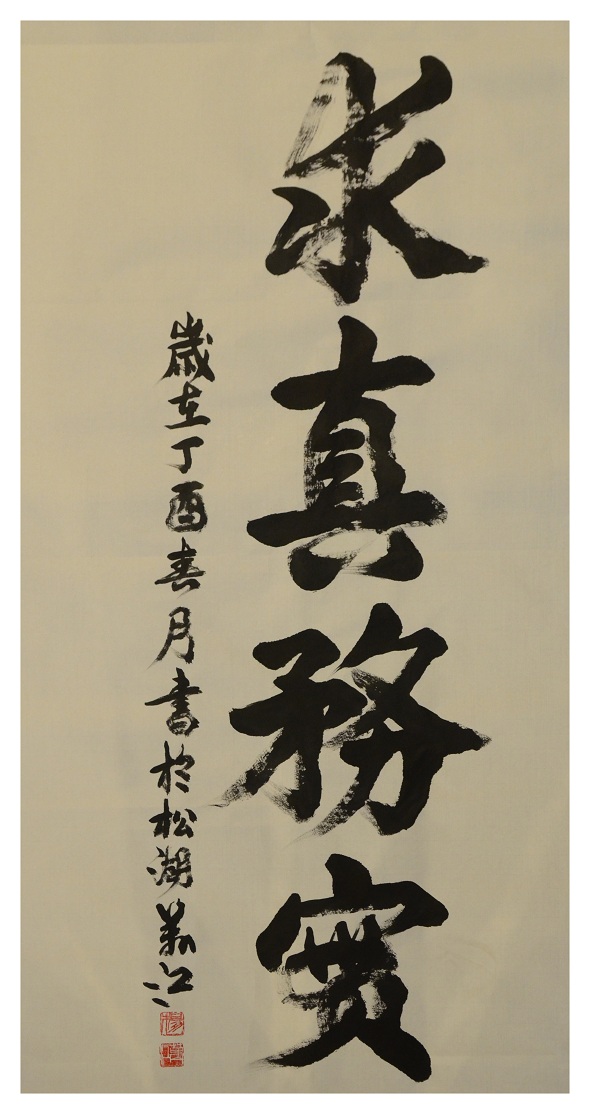 求真務實
歲在丁酉春月書於松湖江